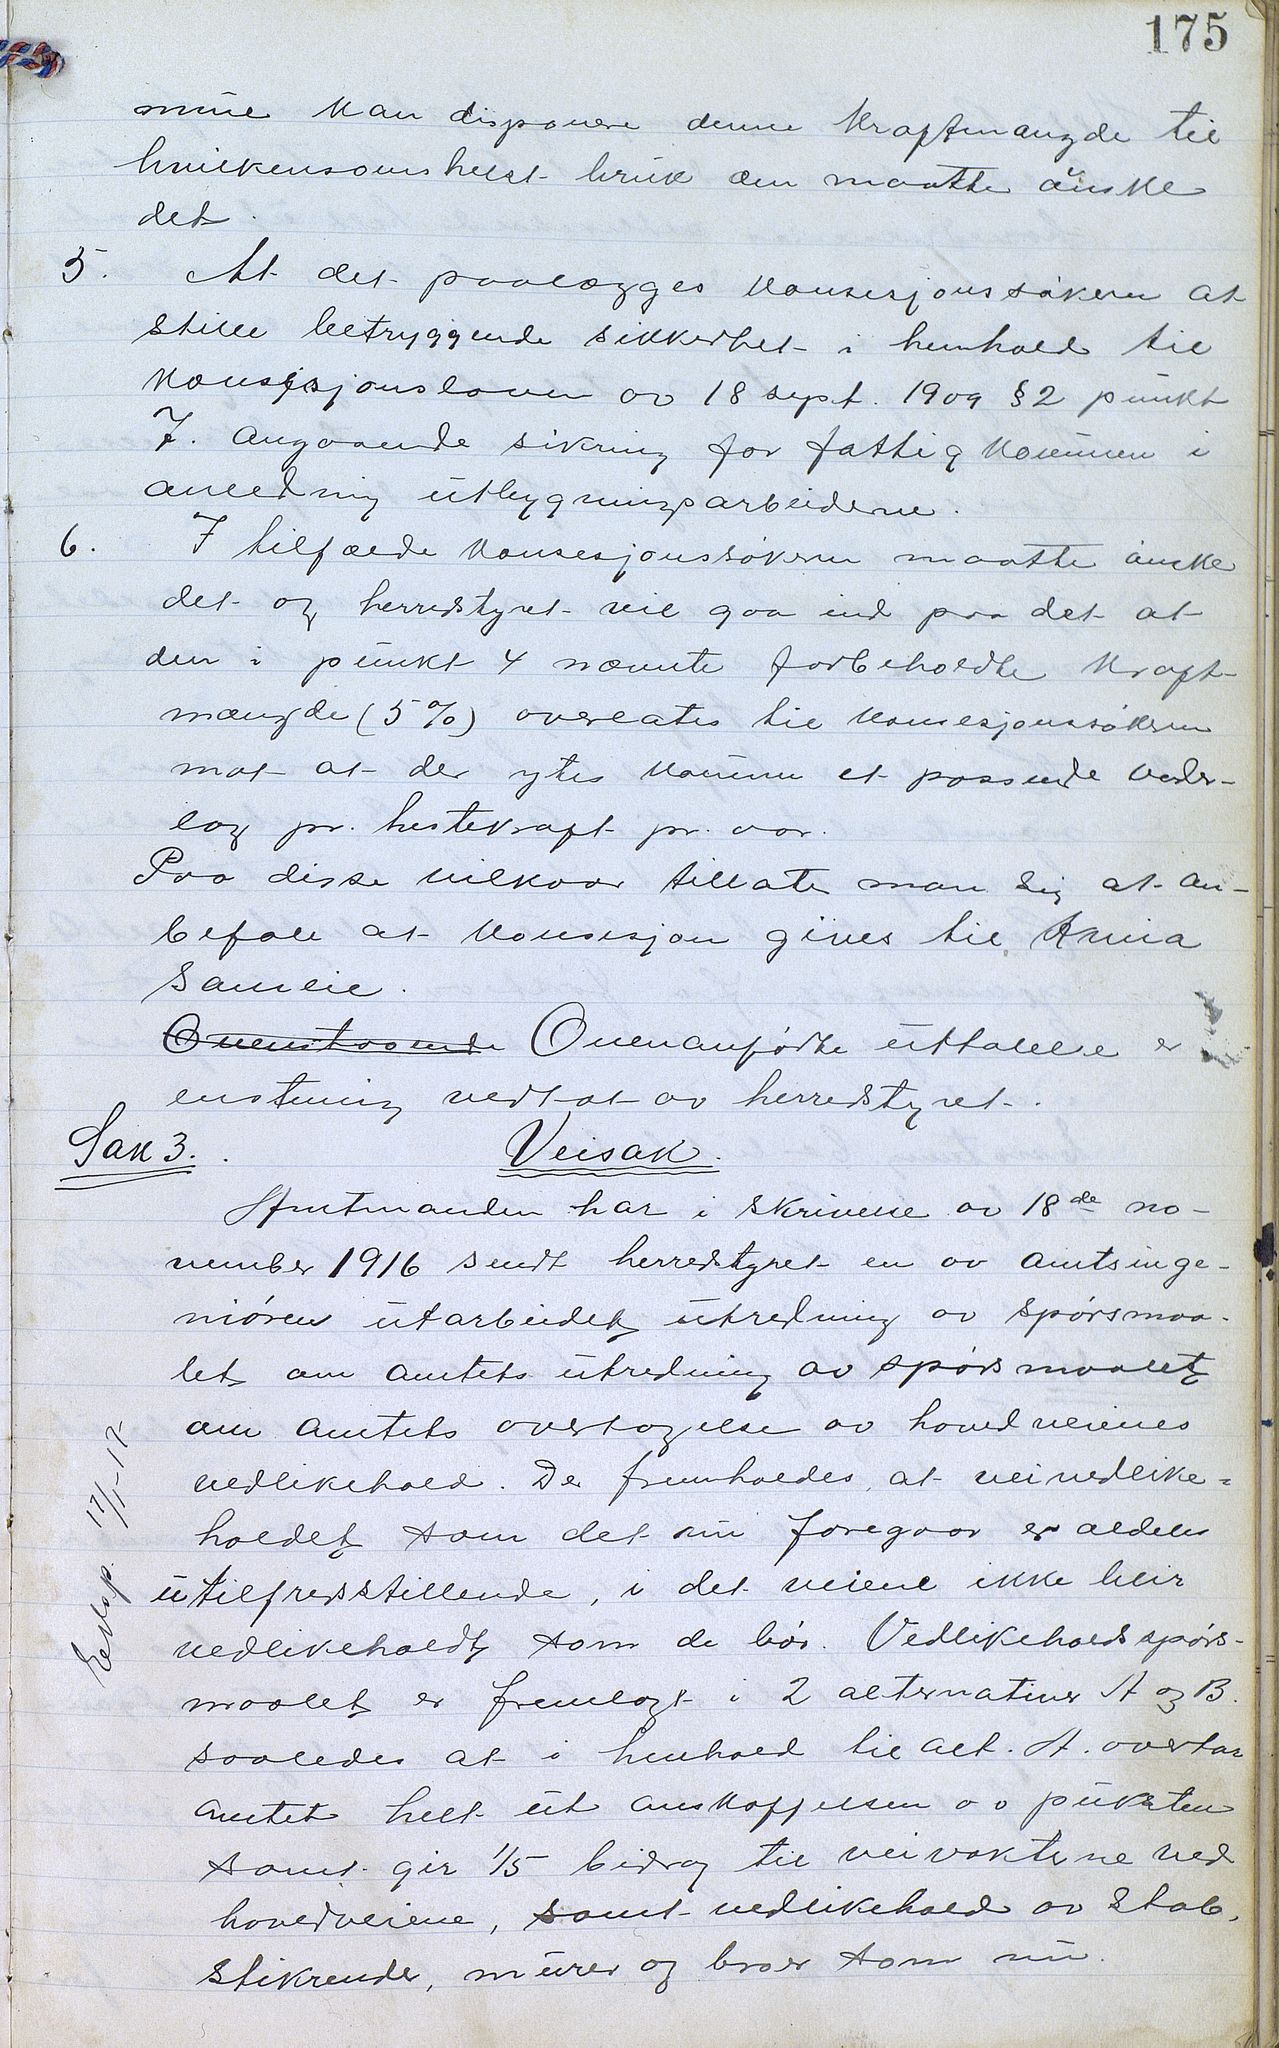 175
mune kan disponere denne kraftmængde til
hvilkensomhelst bruk den maatte ønske
det.
5. At det paalægges konsesjonssøkeren at
stille betryggende sikkerhet i henhold til
konsesjonsloven av 18 sept. 1909 § 2 punkt
7. angaaende sikring for fattigkommunen i
anledning utbygningsarbeiderne.
6. I tilfælde konsesjonssøkeren maatte ønske
det og herredstyret vil gaa ind paa det at
den i punkt 4 nævnte forbeholdte kraft-
mængde (5%) overlates til konsesjonssøkeren
mot at der ytes kommunen et passende veder-
lag pr. hestekraft pr. aar.
Paa disse vilkaar tillater man sig at an-
befale at konsesjon gives til
Sameie.
Ovenstaaende Ovenanførte uttalelse er
enstemmig vedtat av herredstyret.
Sak 3. Veisak.
Amtmanden har i skrivelse av 18de no-
vember 1916 sendt herredstyret en av amtsinge-
niøren utarbeidet utredning av spørsmaa-
let om amtets utredning av spørsmaalet
om amtets overtagelse av hovedveienes
vedlikehold. De fremholdes, at veivedlike-
holdet som det nu foregaar er aldeles
utilfredsstillende, i det veiene ikke blir
vedlikeholdt som de bør. Vedlikeholdsspørs-
maalet er fremlagt i 2 alternativer A og B.
saaledes at i henhold til alt. A. overtar
amtet helt ut anskaffelsen av pukksten
samt gir 1/5 bidrag til veivokterne ved
hovedveiene, samt vedlikehold av stab,
stikrender, murer og broer som nu.
17/1-17